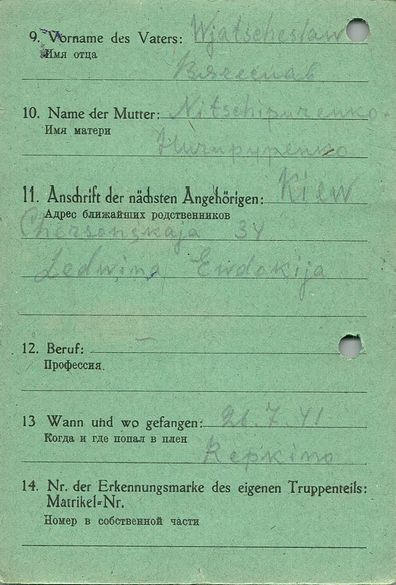 9. Vorname des Vaters: Wjatscheslaw
Имя отца
Вячеслав
10. Name der Mutter: Nitschipurenko
Имя матери
Ничипуренко
11. Anschrift der nächsten Angehörigen: Kiew
Адрес ближайших родственников
Chersonskaja 34
Ledwina Ewdokija
12. Beruf:
Профессия
13 Wann und wo gefangen: 26.7.41
Когда и где попал в плен
Repkino
14. Nr. der Erkennungsmarke des eigenen Truppenteils:
Matrikel=Nr.
Номер в собственной части